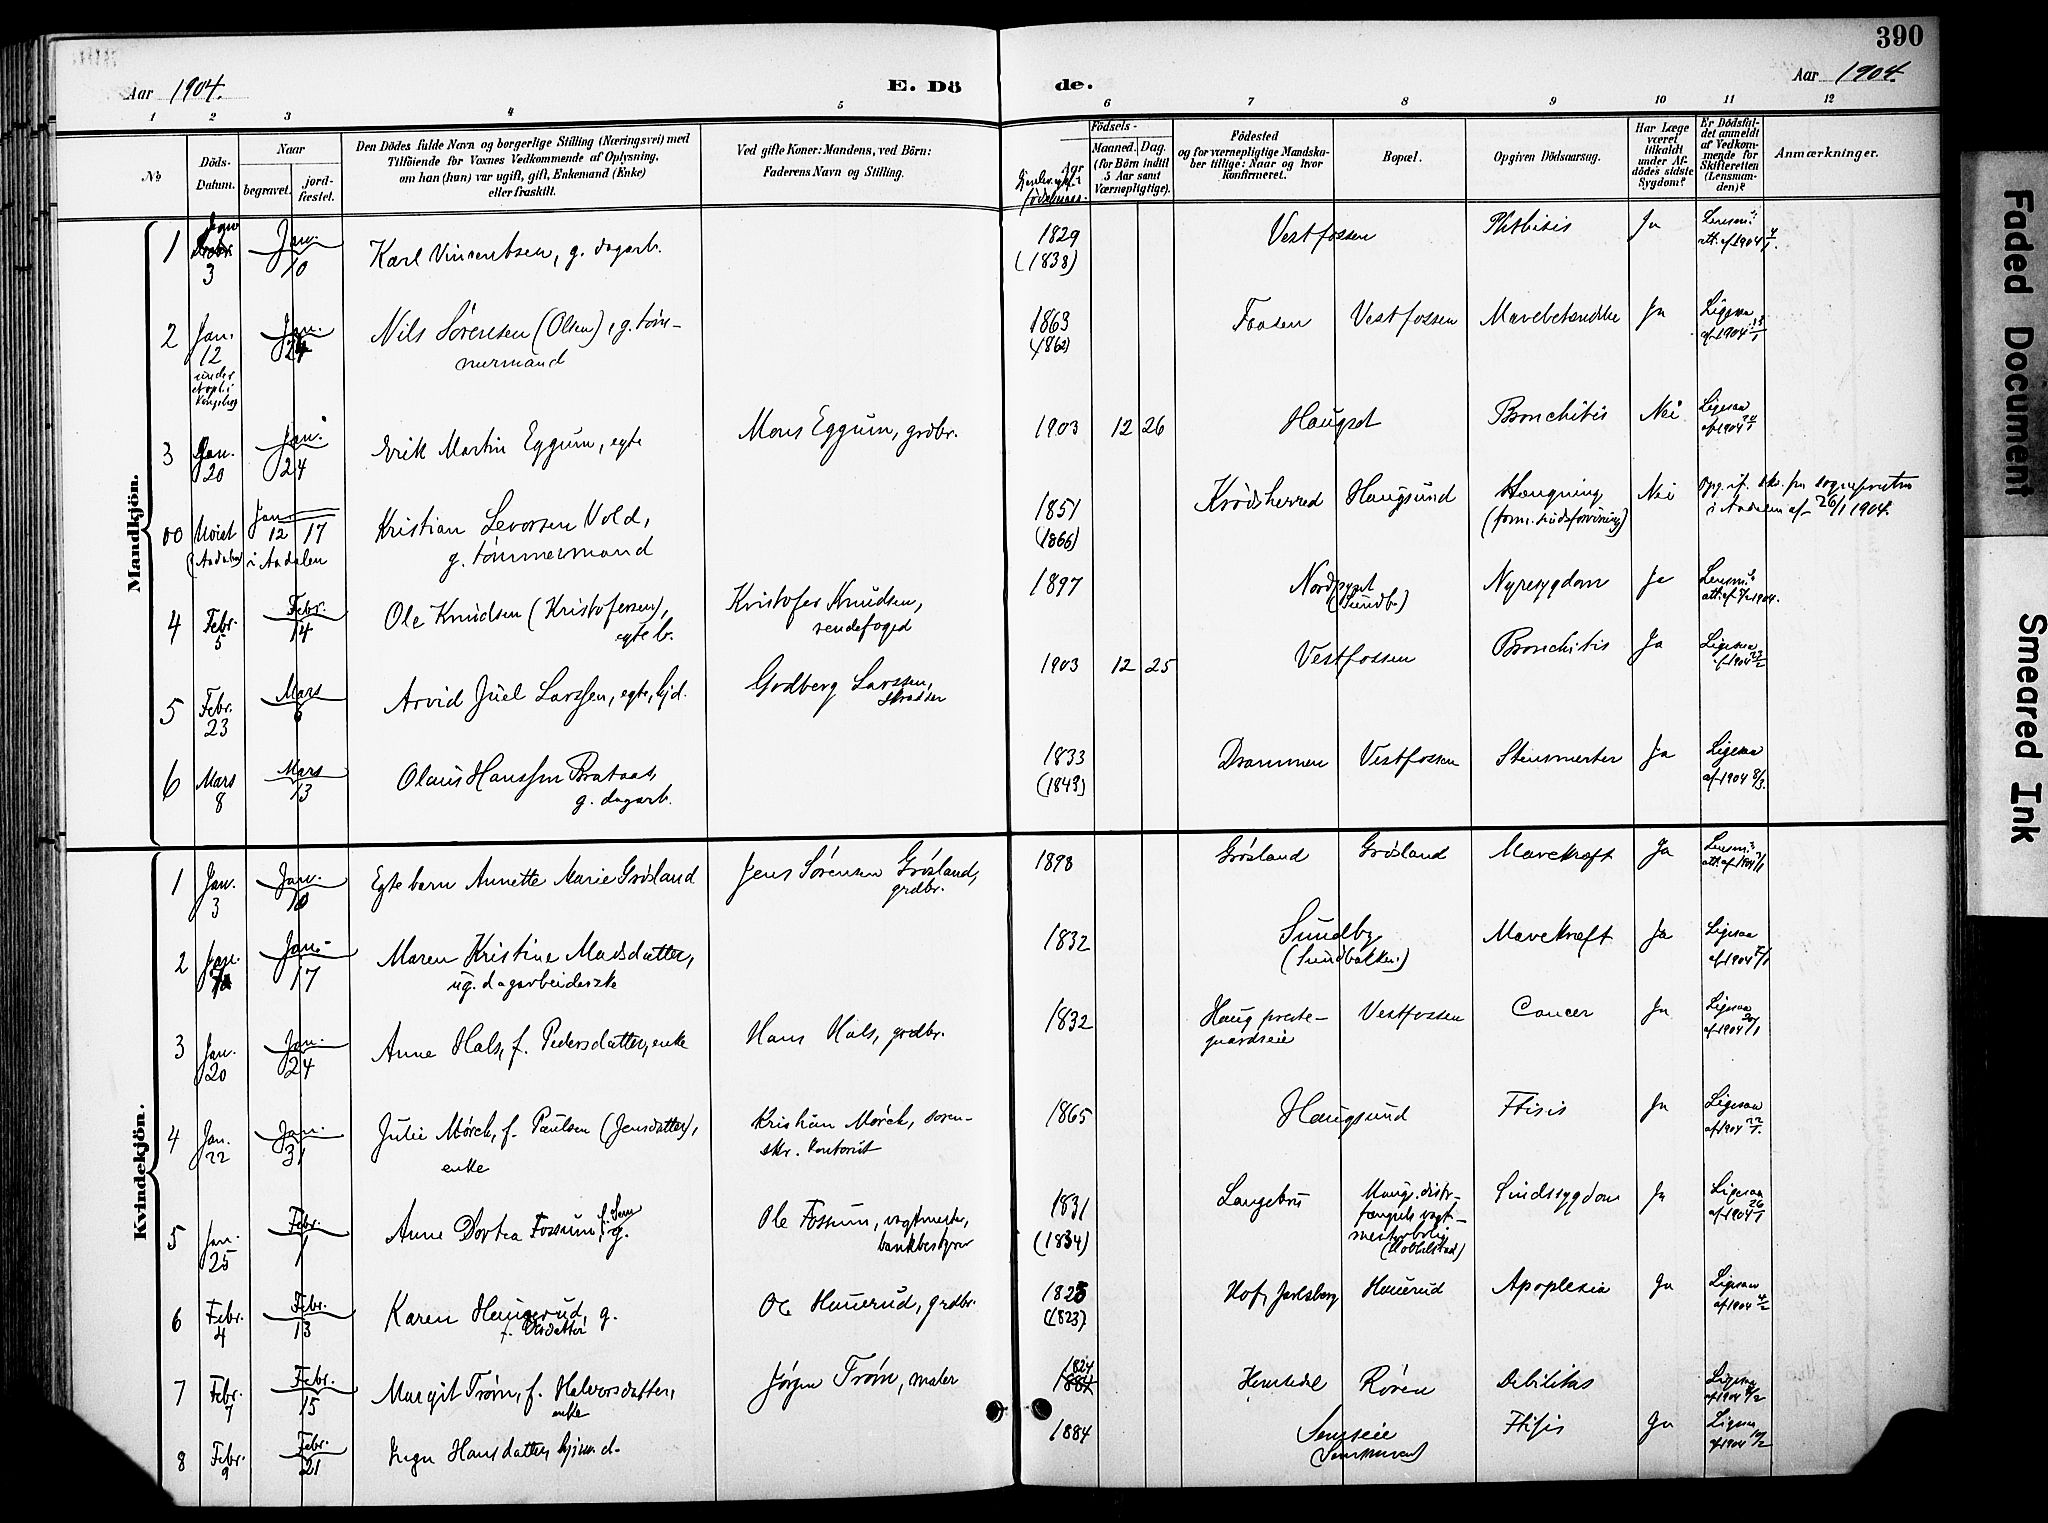 390
Aar 1904.
E. Dö
de.
Aar 1904.
1 2 3 4 5 6 7 8 9 10 11 12
No
Döds-
Datum.
Naar
begravet.
jord-
fæstet.
Den Dödes fulde Navn og borgerlige Stilling (Næringsvei) med
Tilföiende for Voxnes Vedkommende af Oplysning,
om han (hun) var ugift, gift, Enkemand (Enke)
eller fraskilt.
Ved gifte Koner: Mandens, ved Börn:
Faderens Navn og Stilling.
Födsels-
Aar
Maaned. Dag.
(for Börn indtil
5 Aar samt
Værnepligtige).
Födested
og for værnepligtige Mandska-
ber tillige: Naar og hvor
konfirmeret.
Bopæl.
Opgiven Dödsaarsag.
Har Læge
været
tilkaldt
under Af-
dödes sidste
Sygdom?
Er Dödsfal-
det anmeldt
af Vedkom-
mende for
Skifteretten
(Lensman-
den)?
Anmærkninger.
Mandkjön.
1 3 Jan. 10 Karl Vincentsen, g. dagarb. 1829 Vestfossen Phthisis Ja Lensm.
(1838) att. af 1904 4/1.
2 Jan. 12 Jan. 24 Nils Sørensen (Olsen), g. tøm-
mermand 1863 Faasen Vestfossen Ja Ligesaa
(1862) af 1904 13/1
under
3 Jan. 20 Jan. 24 Erik Martin Eggum, egte Mons Eggum, grdbr. 1903 12 26 Haugset Bronchitis Nei Ligesaa
af 1904
00 Jan. 12 17 Kristian Levorsen Vold,
g. tømmermand 1851 Krødsherred Haugsund Hængning Nei
(Aadalen) i Aadalen (1866) i Aadalen af 26/1 1904.
4 Febr. 5 Febr. 14 Ole Knudsen (Kristofersen),
egte b. Kristofer Knudsen,
rendefoged 1897 (Sundb.) Nyresygdom Ja Lensm.
att. af 1904.
5 Febr. 23 Mars 6 Arvid Juel Larssen, egte, hjd. Godberg Larssen,
skrædder 1903 12 25 Vestfossen Bronchitis Ja Ligesaa
af 1904 23/2
6 Mars 8 Mars 13 Olaus Hanssen Brataas,
g. dagarb. 1833 Drammen Vestfossen Stensmerter Ja Ligesaa
(1843) af 1904 8/3.
Kvindekjön.
1 Jan. 3 Jan. 10 Egte barn Annette Marie Grøsland Jens Sørensen Grøsland,
grdbr. 1898 Grøsland Grøsland Mavekræft Ja Lensm.
2 Jan. Jan. 17 Maren Kristine Madsdatter,
ug. dagarbeiderske 1832 Sundby
(Sundbakken) Mavekræft Ja Ligesaa
af 1904
3 Jan. 20 Jan. 24 Anne Hals, f. Pedersdatter, enke Hans Hals, grdbr. 1832 Haug preste-
gaardseie Vestfossen Cancer Ja Ligesaa
af 1904
4 Jan. 22 Jan. 31 Julie Mørch, f. Paulsen (Jensdatter),
enke Kristian Mørch, soren-
skr. kontorist 1865 Haugsund Ftisis Ja Ligesaa
af 1904 22/1.
5 Jan. 25 Febr. 1 Anne Dortea Fossum, f. Sem
g. Ole Fossum, vagtmester,
bankbestyrer 1831 Langebru Haugs. distr-
fængsels vagt-
mesterbolig Sindssygdom Ja Ligesaa
(1834) af 1904 26/1
6 Febr. 4 Febr. 13 Karen Haugerud, g.
f. Olsdatter Ole Hauerud, grdbr. 1825 Hof, Jarlsberg Hauerud Apoplexia Ja Ligesaa
(1823) af 1904 4/2
7 Febr. 7 Febr. 15 Margit Trøim, f. Halvorsdatter,
enke Jørgen Trøim, maler 1824 Hemsedal Røren Debilitas Ligesaa
af 1904
8 Febr. 9 Febr. 21 Inga Hansdatter, hjmd. 1884 Semseie Ftisis Ja Ligesaa
af 1904 10/2
Faded Document
Smeared Ink